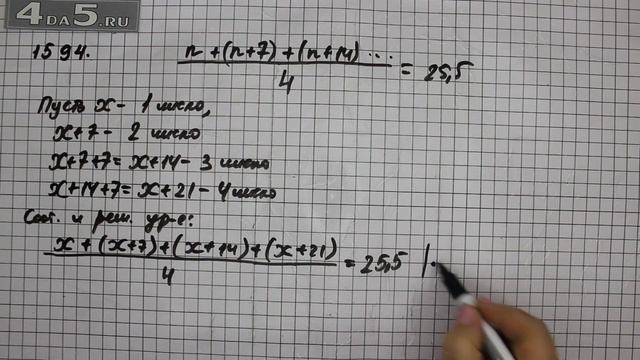 4DA5.RU
1594. n + (n+7) + (n+14) ... / 4 = 25,5
Пусть x - 1 число,
x+7 - 2 число
x+7+7 = x+14 - 3 число
x+14+7 = x+21 - 4 число
Сост. и реш. ур-е:
x + (x+7) + (x+14) + (x+21) / 4 = 25,5 | ·